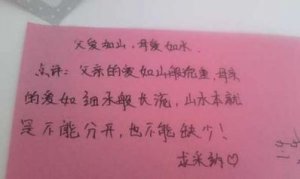 父爱如山，母爱如水.
点评：父亲的爱如山般稳重，母亲
的爱如细水般长流，山水本就
是不能分开，也不能缺少！
求采纳♡